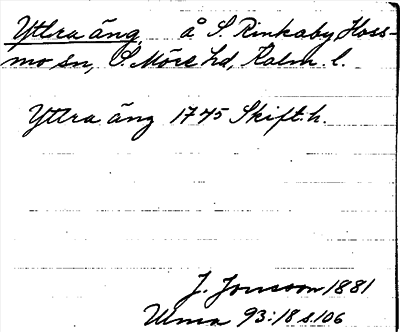 Yttra äng å S. Rinkaby Hoss-
mo sn, S. Möre hd, Kalm. l.
Yttra äng 1745 Skift.h.
J. Jonsson 1881
Ulma 93:18 s.106